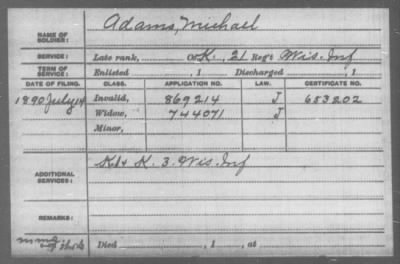 NAME OF SOLDIER: Adams, Michael
SERVICE: Late rank, Of K, 21 Reg't Wis. Inf
TERM OF SERVICE: Enlisted , 1 Discharged , 1
DATE OF FILING. CLASS. APPLICATION NO. LAW. CERTIFICATE NO.
1890 July 14 Invalid, 869214 J 653202
Widow, 744071 J
Minor,
ADDITIONAL SERVICES: K. 3. Wis. Inf
REMARKS:
Died , 1 , at